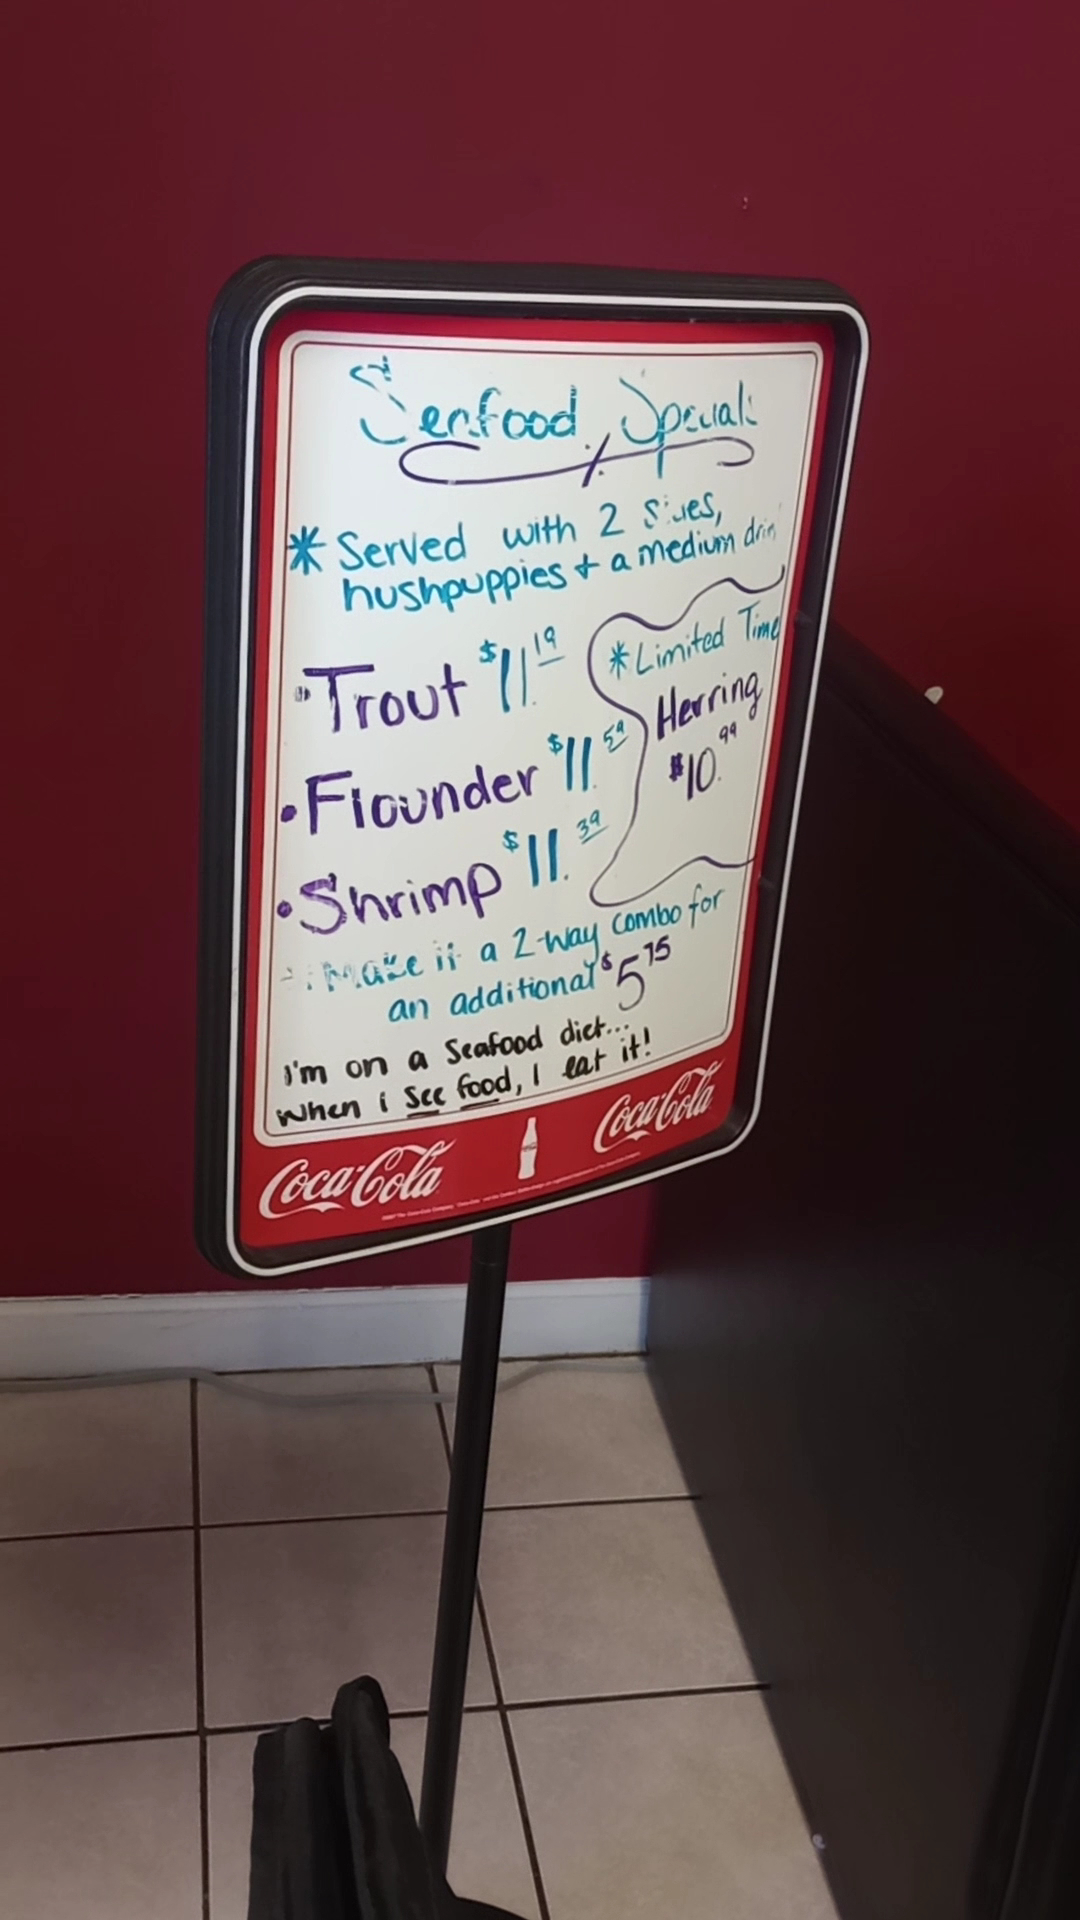 Seafood Specials
* Served with 2 Sides,
hushpuppies + a medium drink
• Trout $11.19
* Limited Time
Herring
$10.99
• Flounder $11.59
• Shrimp $11.39
* Make it a 2-way combo for
an additional $5.75
I'm on a Seafood diet...
When i See food, I eat it!
Coca-Cola Coca-Cola